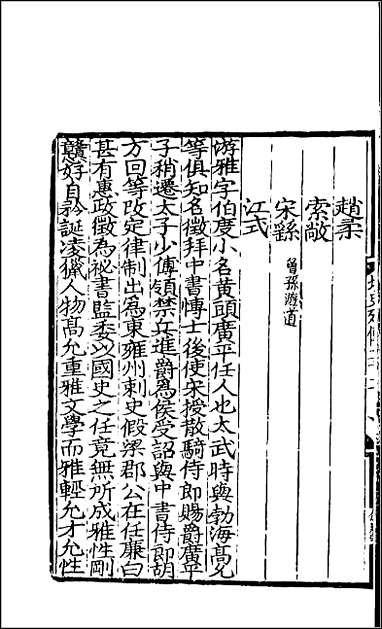 趙柔
索敞
宋繇 曾孫遊道
江式
游雅字伯度小名黃頭廣平任人也太武時與勃海高允
等俱知名徵拜中書愽士後使宋授散騎侍郎賜爵廣平
子稍遷太子少傅領禁兵進爵為侯受詔與中書侍郎胡
方回等改定律制出為東雍州刺史假梁郡公在任廉白
甚有惠政徵為祕書監委以國史之任竟無所成雅性剛
戇好自矜誕凌獵人物高允重雅文學而雅輕允才允性